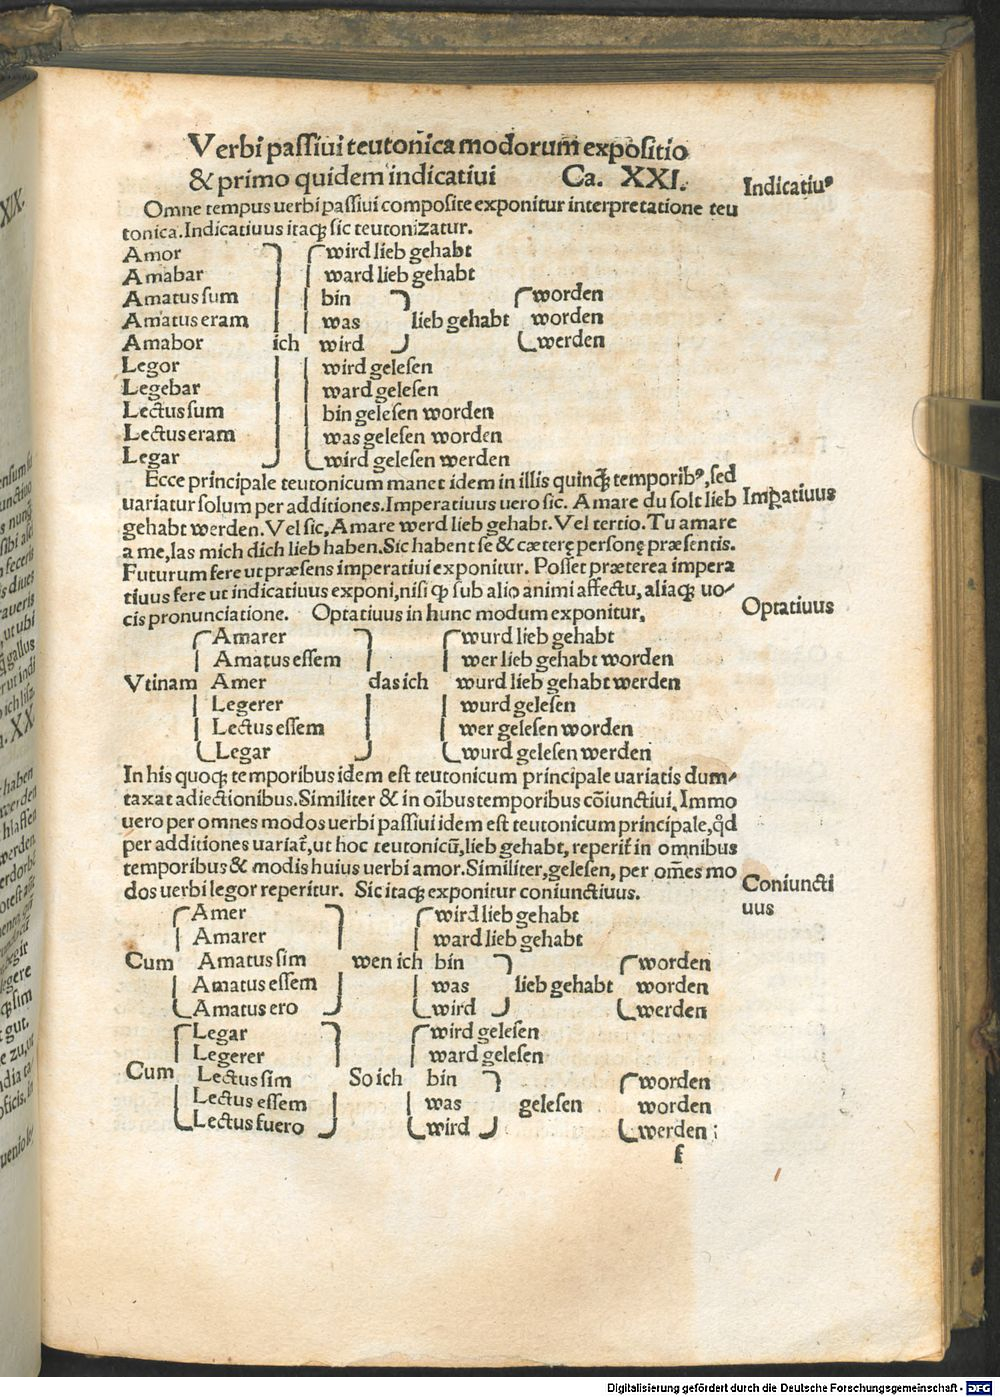 Verbi passiui teutoñica modorum̃ expositio
& primo quidem indicatiui Ca. XXI.
Indicatiuꝰ
Omne tempus uerbi passiui composite exponitur interpretatione teu
tonica. Indicatiuus itaqꝫ sic teutonizatur.
Amor wird lieb gehabt
Amabar ward lieb gehabt
Amatus sum bin worden
Amatus eram was lieb gehabt worden
Amabor ich wird werden
Legor wird gelesen
Legebar ward gelesen
Lectus sum bin gelesen worden
Lectus eram was gelesen worden
Legar wird gelesen werden
Ecce principale teutonicum manet idem in illis quinqꝫ temporibꝰ, sed
uariatur solum per additiones. Imperatiuus uero sic. Amare du solt lieb
Imꝑatiuus
gehabt werden. Vel sic, Amare werd lieb gehabt. Vel tertio. Tu amare
a me, las mich dich lieb haben. Sic habent se & cæterę personę præsentis.
Futurum fere ut præsens imperatiui exponitur. Posset præterea impera
tiuus fere ut indicatiuus exponi, nisi ꝙ sub alio animi affectu, aliaqꝫ uo-
cis pronunciatione. Optatiuus in hunc modum exponitur.
Optatiuus
Amarer wurd lieb gehabt
Amatus essem wer lieb gehabt worden
Vtinam Amer das ich wurd lieb gehabt werden
Legerer wurd gelesen
Lectus essem wer gelesen worden
Legar wurd gelesen werden
In his quoqꝫ temporibus idem est teutonicum principale uariatis dum-
taxat adiectionibus. Similiter & in oĩbus temporibus cõiunctiui. Immo
uero per omnes modos uerbi passiui idem est teutonicum principale, qđ
per additiones uariat̃, ut hoc teutonicũ, lieb gehabt, reperit̃ in omnibus
temporibus & modis huius uerbi amor. Similiter, gelesen, per om̃es mo
dos uerbi legor reperitur. Sic itaqꝫ exponitur coniunctiuus.
Coniuncti
uus
Amer wird lieb gehabt
Amarer ward lieb gehabt
Cum Amatus sim wen ich bin worden
Amatus essem was lieb gehabt worden
Amatus ero wird werden
Legar wird gelesen
Legerer ward gelesen
Cum Lectus sim So ich bin worden
Lectus essem was gelesen worden
Lectus fuero wird werden;
f
Digitalisierung gefördert durch die Deutsche Forschungsgemeinschaft - DFG